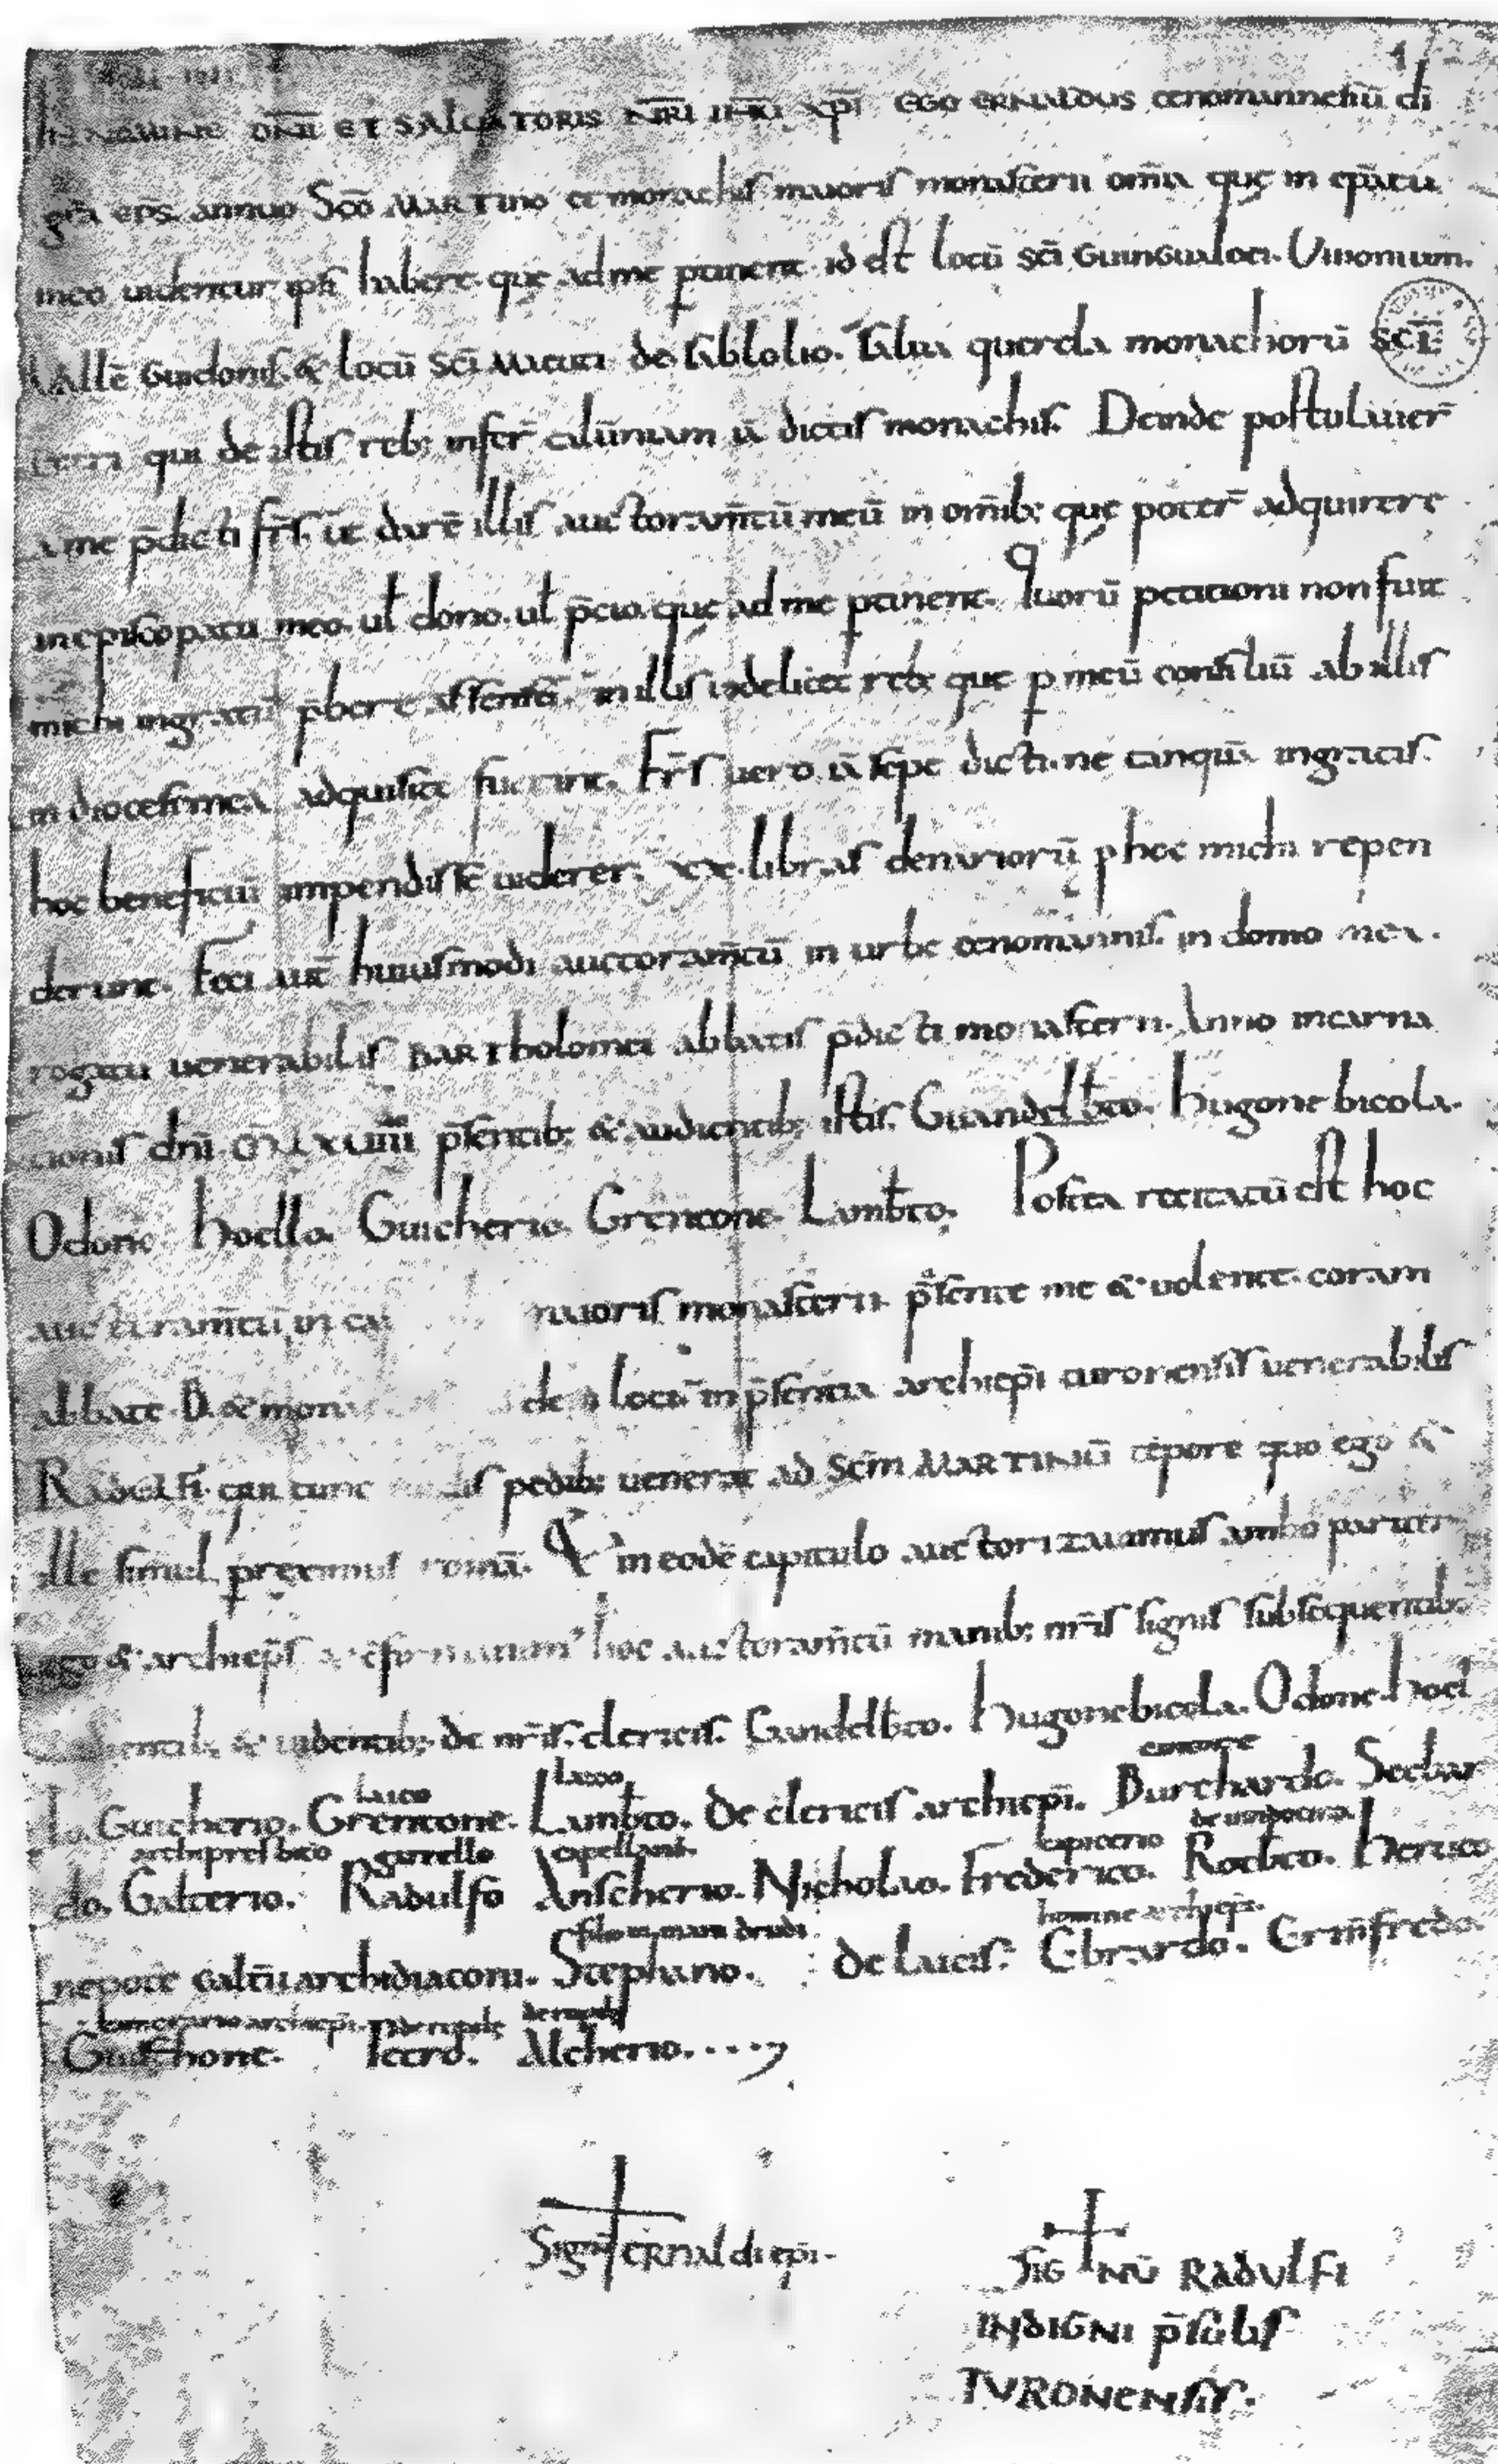 IN NOMINE DNI ET SALVATORIS NRI IHU XPI EGO ERNALDUS cenomannensiū di
grā eps annuo Scō MARTino et monachis maioris monasterii omīa quę in epatu
meo uidentur ipsi habere quę ad me ptinent id est locū Sci Guingualoei. Uiuonium.
Uallē Guidonis. & locū Sci Macuti de sablolio. salua querela monachorū SCE
qui de istis reb; infer calūniam iā dictis monachis. Deinde postulauer̄
a me p̄dicti fr̄s. ut darē illis auctoram̄tū meū in omīb; quę poter̄ adquirere
in episcopatu meo. ul dono. ul p̄cio quę ad me ptinent. Quorū petitioni non fuit
michi ingratū p̄bere assensū. in illis uidelicet reb; que p meū consiliū ab illis
in diocesi mea adquisitę fuerint. Fr̄s uero iā sepe dicti. ne tanquā ingratis
hoc beneficiū impendisse uiderer. xx. libras denariorū p hoc michi repen
derunt. Feci aut̄ huiusmodi auctoram̄tū in urbe cenomannis. in domo mea.
rogatu uenerabilis BARTholomei abbatis p̄dicti monasterii. Anno incarna
tionis dn̄i M̄ LXVIIII p̄sentib; & audientib; istis. Guandelbto. Hugone bicola.
Odone Hoello. Guicherio. Grentone. Lanbto. Postea recitatū est hoc
auctoram̄tū in ca maioris monasterii p̄sente me & uolente. coram
abbate .B. & mona loci in p̄sentia archiepi turonensis uenerabilis
RADULFI. qui tunc nudis pedib; uenerat ad SCM MARTINŪ tēpore quo ego &
ille simul preximus romā. Et in eodē capitulo auctorizauimus ambo pariter
ego & archieps & cfirmauim' hoc auctoram̄tū manib; nr̄is signis subsequentib;
& uidentib; de nr̄is clericis. Guandelbto. Hugone bicola. Odone. Hoel
cantore
laico laico
lo. Guicherio. Grentone. Lanbto. De clericis archiepi. Burchardo. Seebar
archipresbitō capellano. capicerio de uindocino.
do. Galterio. Radulfo Anscherio. Nicholao. Frederico. Rotbto. Herueo
homine archiepi.
nepote galterii archidiaconi. Stephano. De laicis. Ebrardo. Ermfredo.
camerario archiepi. de rupib;
Petro. Alcherio....
Signū ERnaldi epi.
SIGNŪ RADULFI
INDIGNI p̄sulis
TURONENSIS.